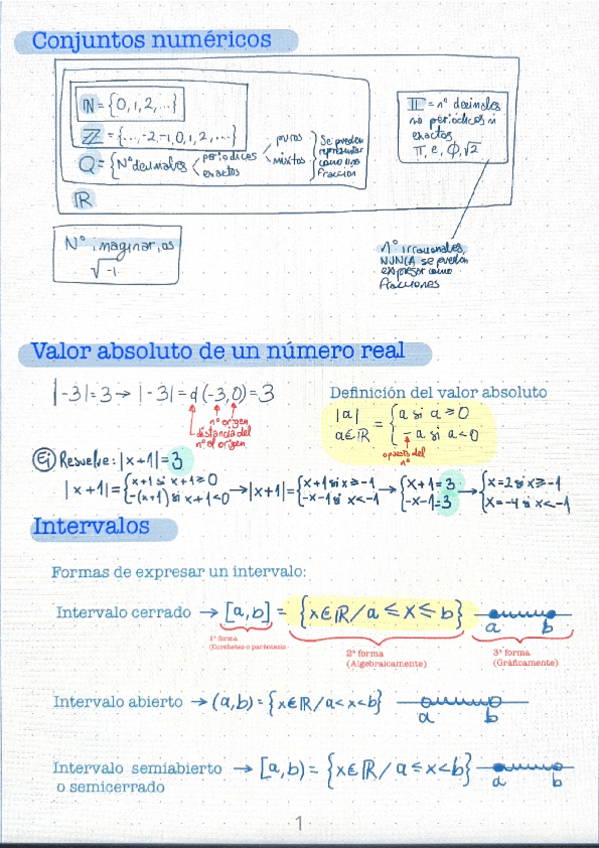 Conjuntos numéricos
ℕ = {0, 1, 2, ...}
ℤ = {..., -2, -1, 0, 1, 2, ...}
Q = {Nº decimales < periodicos < puros
mixtos
exactos
Se pueden
representar
como una
fracción
ℝ
𝕀 = nº decimales
no periódicos ni
exactos
π, e, Φ, √2
Nº imaginarios
√-1
nº irracionales,
NUNCA se pueden
expresar como
fracciones
Valor absoluto de un número real
|-3| = 3 → |-3| = d(-3,0) = 3
nº origen
distancia del
nº al origen
Definición del valor absoluto
|a|
a∈ℝ = { a si a ≥ 0
-a si a < 0
opuesto del
nº
Ej Resuelve: |x+1| = 3
|x+1| = { x+1 si x+1 ≥ 0
-(x+1) si x+1 < 0 → |x+1| = { x+1 si x ≥ -1
-x-1 si x < -1 → { x+1 = 3
-x-1 = 3 → { x = 2 si x ≥ -1
x = -4 si x < -1
Intervalos
Formas de expresar un intervalo:
Intervalo cerrado → [a,b] = {x∈ℝ / a ≤ x ≤ b}
a b
1ª forma
(Corchetes o paréntesis
2ª forma
(Algebraicamente)
3ª forma
(Gráficamente)
Intervalo abierto → (a,b) = {x∈ℝ / a < x < b}
a b
Intervalo semiabierto → [a,b) = {x∈ℝ / a ≤ x < b}
o semicerrado
a b
1